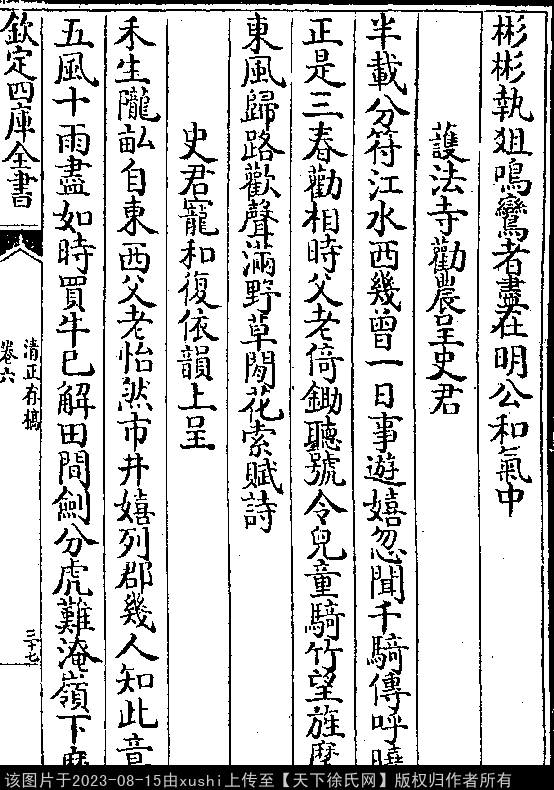 彬彬執狙鳴鸞者盡在明公和氣中
護法寺勸農呈史君
半載分符江水西幾曾一日事遊嬉忽聞千騎傳呼曉
正是三春勸相時父老倚鋤聽號令兒童騎竹望旌麾
東風歸路歡聲滿野草閒花索賦詩
史君寵和復依韻上呈
禾生隴畝自東西父老怡然市井嬉列郡幾人知此意
五風十雨盡如時買牛已解田間劍分虎難淹嶺下麾
欽定四庫全書
清正存稿
卷六
三十七
该图片于2023-08-15由xushi上传至【天下徐氏网】版权归作者所有